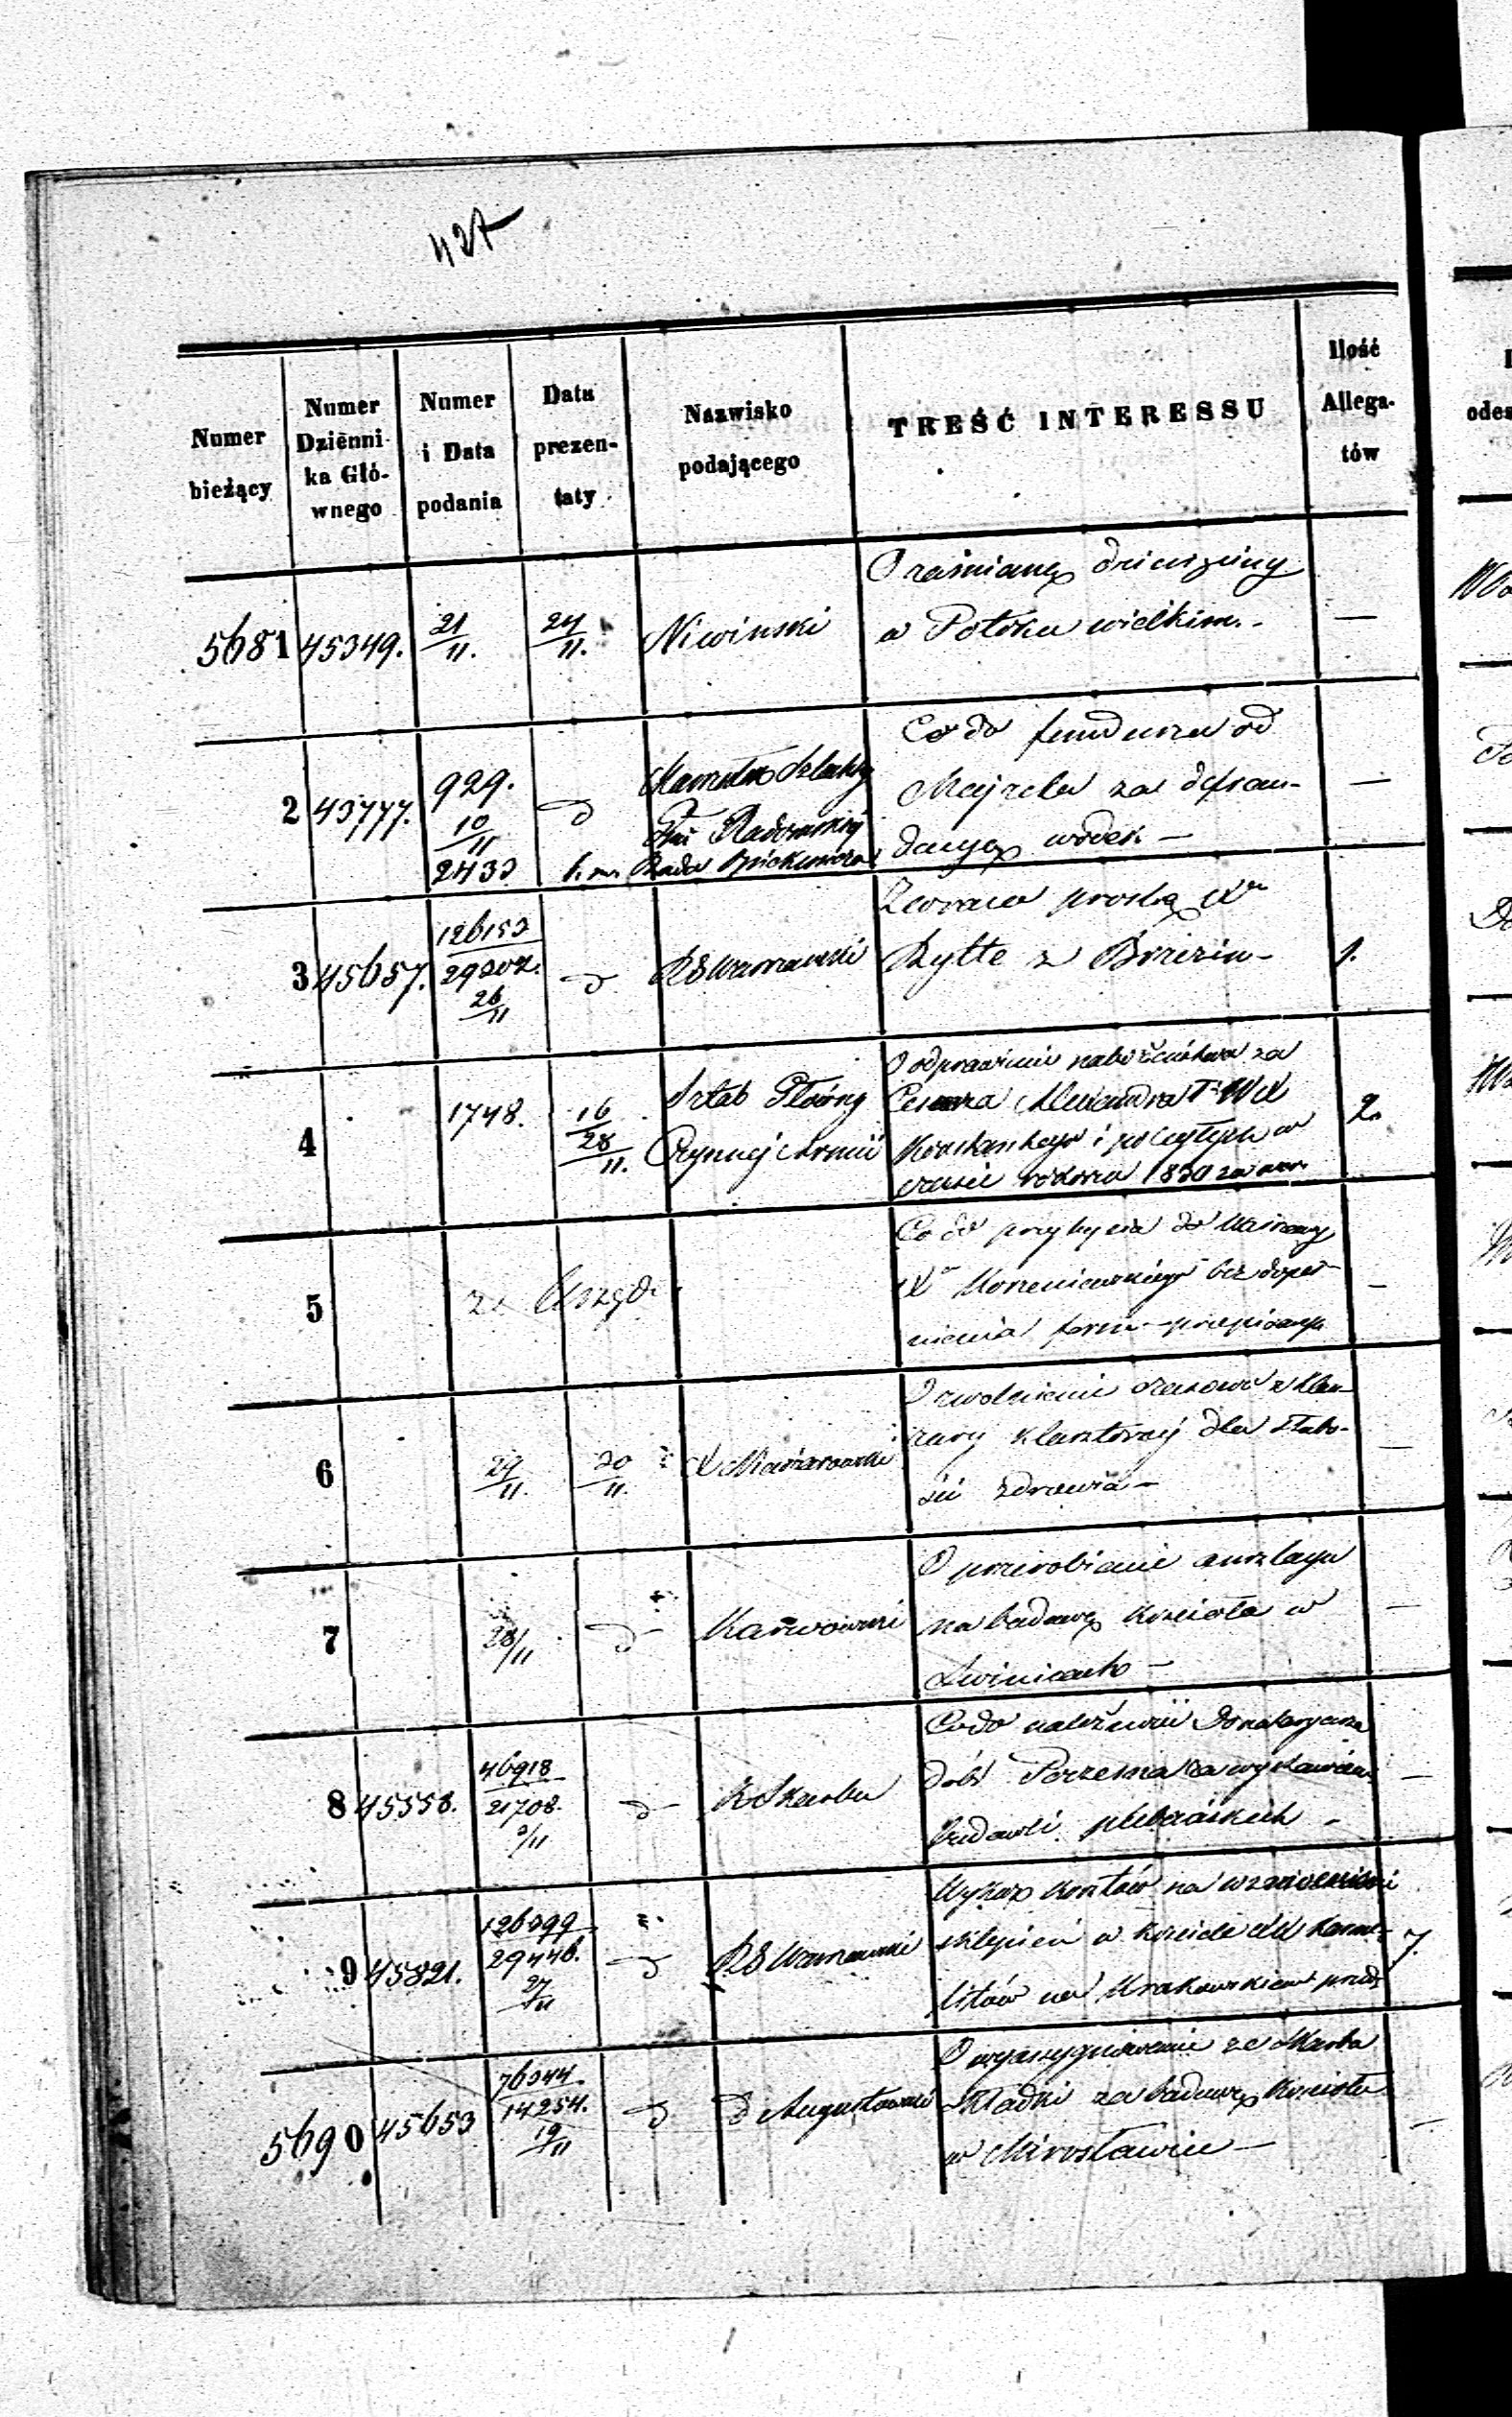 427
Numer bieżący
Numer Dzienni- ka Głó- wnego
Numer i Data podania
Data prezen- taty
Nazwisko podającego
TREŚĆ INTERESSU
Ilość Allega- tów
5681 45349. 21/11. 24/11. Niwiński
O zamianę dziesięciny
w Potoku wielkim. —
2 43777. 929. 10/11 2433 d
Gub. Radomskiej
Rada Opiekuńcza
Co do funduszu od
Majzela za defrau-
dacyą wódek. —
3 45657. 126153 29202. 26/11 d RG Warszawski
Zwraca prośbę Xa
Rytte z Brzezin — 1.
4 1748. 16/28 11. Sztab Główny
Czynnej Armii
O odprawienie nabożeństwa za
Cesarza Alexandra I W X
Konstantego i poległych w
czasie 1830 2.
5 z Urzędu
Co do przybycia do Warszawy
Xa Korzeniewskiego bez dopeł-
nienia form przepisanych —
6 29/11. 30/11. X
O zwolnienie czasowe z klau-
zury klasztornej dla słabo-
ści zdrowia —
7 28/11 d Karwowski
O przerobienie anszlagu
na budowę kościoła w
Zwinicach —
8 45558. 46918 21708. 3/11 d K Skarbu
Co do należności Donataryusza
dóbr za wystawienie
budowli plebańskich —
9 45821. 126399 29446. 27/11 d RG Warszawski
Wykaz kosztów na wzniesienie
sklepień w kościele XX Karme-
litów na Krakowskiem przed. 7.
5690 45653 76344 14254. 19/11 d d Augustowski
O wyassygnowanie ze Skarbu
składki za budowę kościoła
w Mirosławiu —